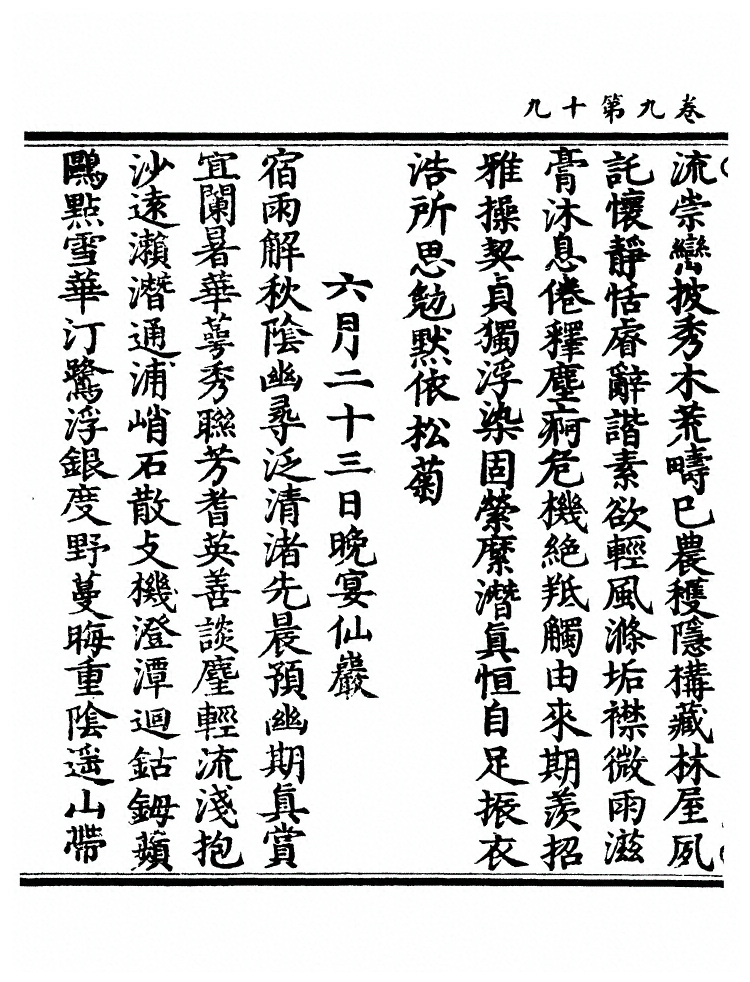 卷九第十九
流崇巒披秀木荒疇已農穫隱構藏林屋夙
託懷靜恬睿辭諧素欲輕風滌垢襟微雨滋
膏沐息倦釋塵痾危機絶羝觸由來期羨招
雅操契貞獨浮染固縈縻潛眞恒自足振衣
浩所思勉默依松菊
六月二十三日晚宴仙巖
宿雨解秋陰幽尋泛清渚先晨預幽期眞賞
宜闌暑華萼秀聯芳耆英善談麈輕流淺抱
沙遠瀨潛通浦峭石散攴機澄潭迴鈷鉧蘋
鷗點雪華汀鷺浮銀度野蔓晦重陰遥山帶